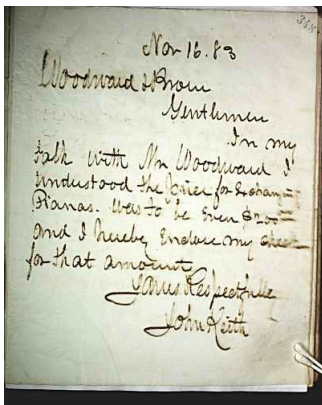 348
Nov 16. 83
Woodward & Brown
Gentlemen
In my
talk with Mr Woodward I
understood the price for Exchanging
Pianos. was to be Even $200
and I hereby Enclose my check
for that amount
Yours Respectfully
John Keith